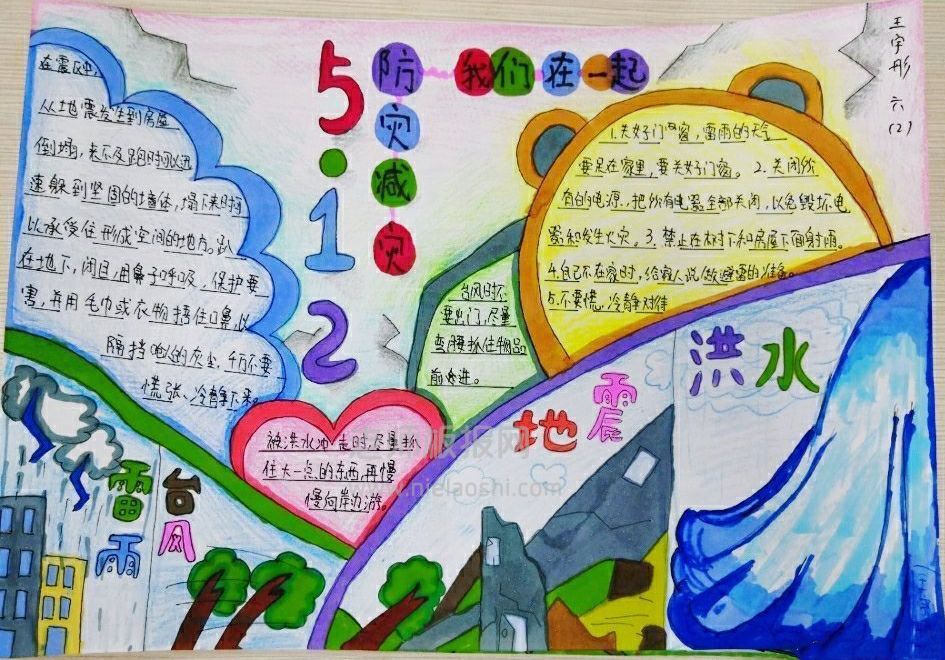 王宇彤 六(2)
5·12
防灾减灾
我们在一起
在震中,
从地震发生到房屋
倒塌,来不及跑时可以迅
速躲到坚固的墙体,塌下来时
以承受住形成空间的地方。趴
在地下,闭目用鼻子呼吸,保护要
害,并用毛巾或衣物捂住口鼻,以
隔挡呛人的灰尘,千万不要
慌张、冷静下来。
1.关好门窗,雷雨的天气
要呆在家里,要关好门窗。2.关闭所
有的电源,把所有电器全部关闭,以免毁坏电
器和发生火灾。3.禁止在树下和房屋下面射雨。
4.自己不在家时,给家人说做避雷的准备。
5.不要慌,冷静对待
台风时不
要出门,尽量
弯腰抓住物品
前进。
被洪水冲走时,尽量抓
住大一点的东西,再慢
慢向岸边游。
地震
洪水
雷雨
台风
板报网
.nielaoshi.com